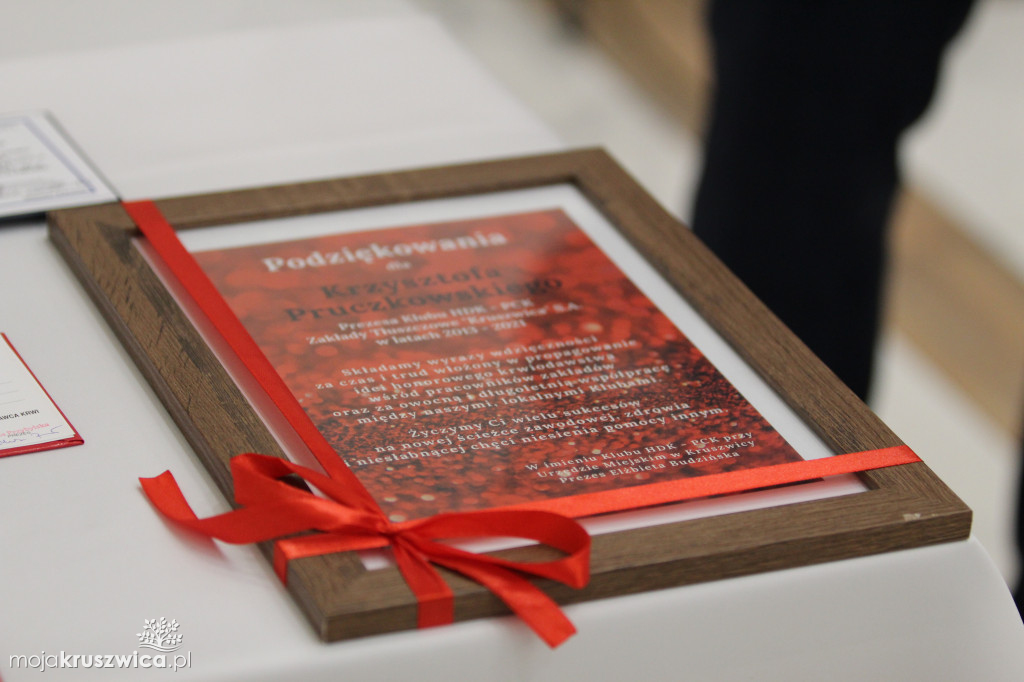 Podziękowania
dla
Krzysztofa
Pruczkowskiego
Prezesa Klubu HDK - PCK
Zakłady Tłuszczowe "Kruszwica" S.A.
w latach 2013 - 2021
Składamy wyrazy wdzięczności
za czas i trud włożony w propagowanie
idei honorowego krwiodawstwa
wśród pracowników zakładów
oraz za owocną i długoletnią współpracę
między naszymi lokalnymi klubami.
Życzymy Ci wielu sukcesów
na nowej ścieżce zawodowej, zdrowia
i niesłabnącej chęci niesienia pomocy innym.
W imieniu Klubu HDK - PCK przy
Urzędzie Miejskim w Kruszwicy
Prezes Elżbieta Budzińska
AWCA KRWI
mojakruszwica.pl